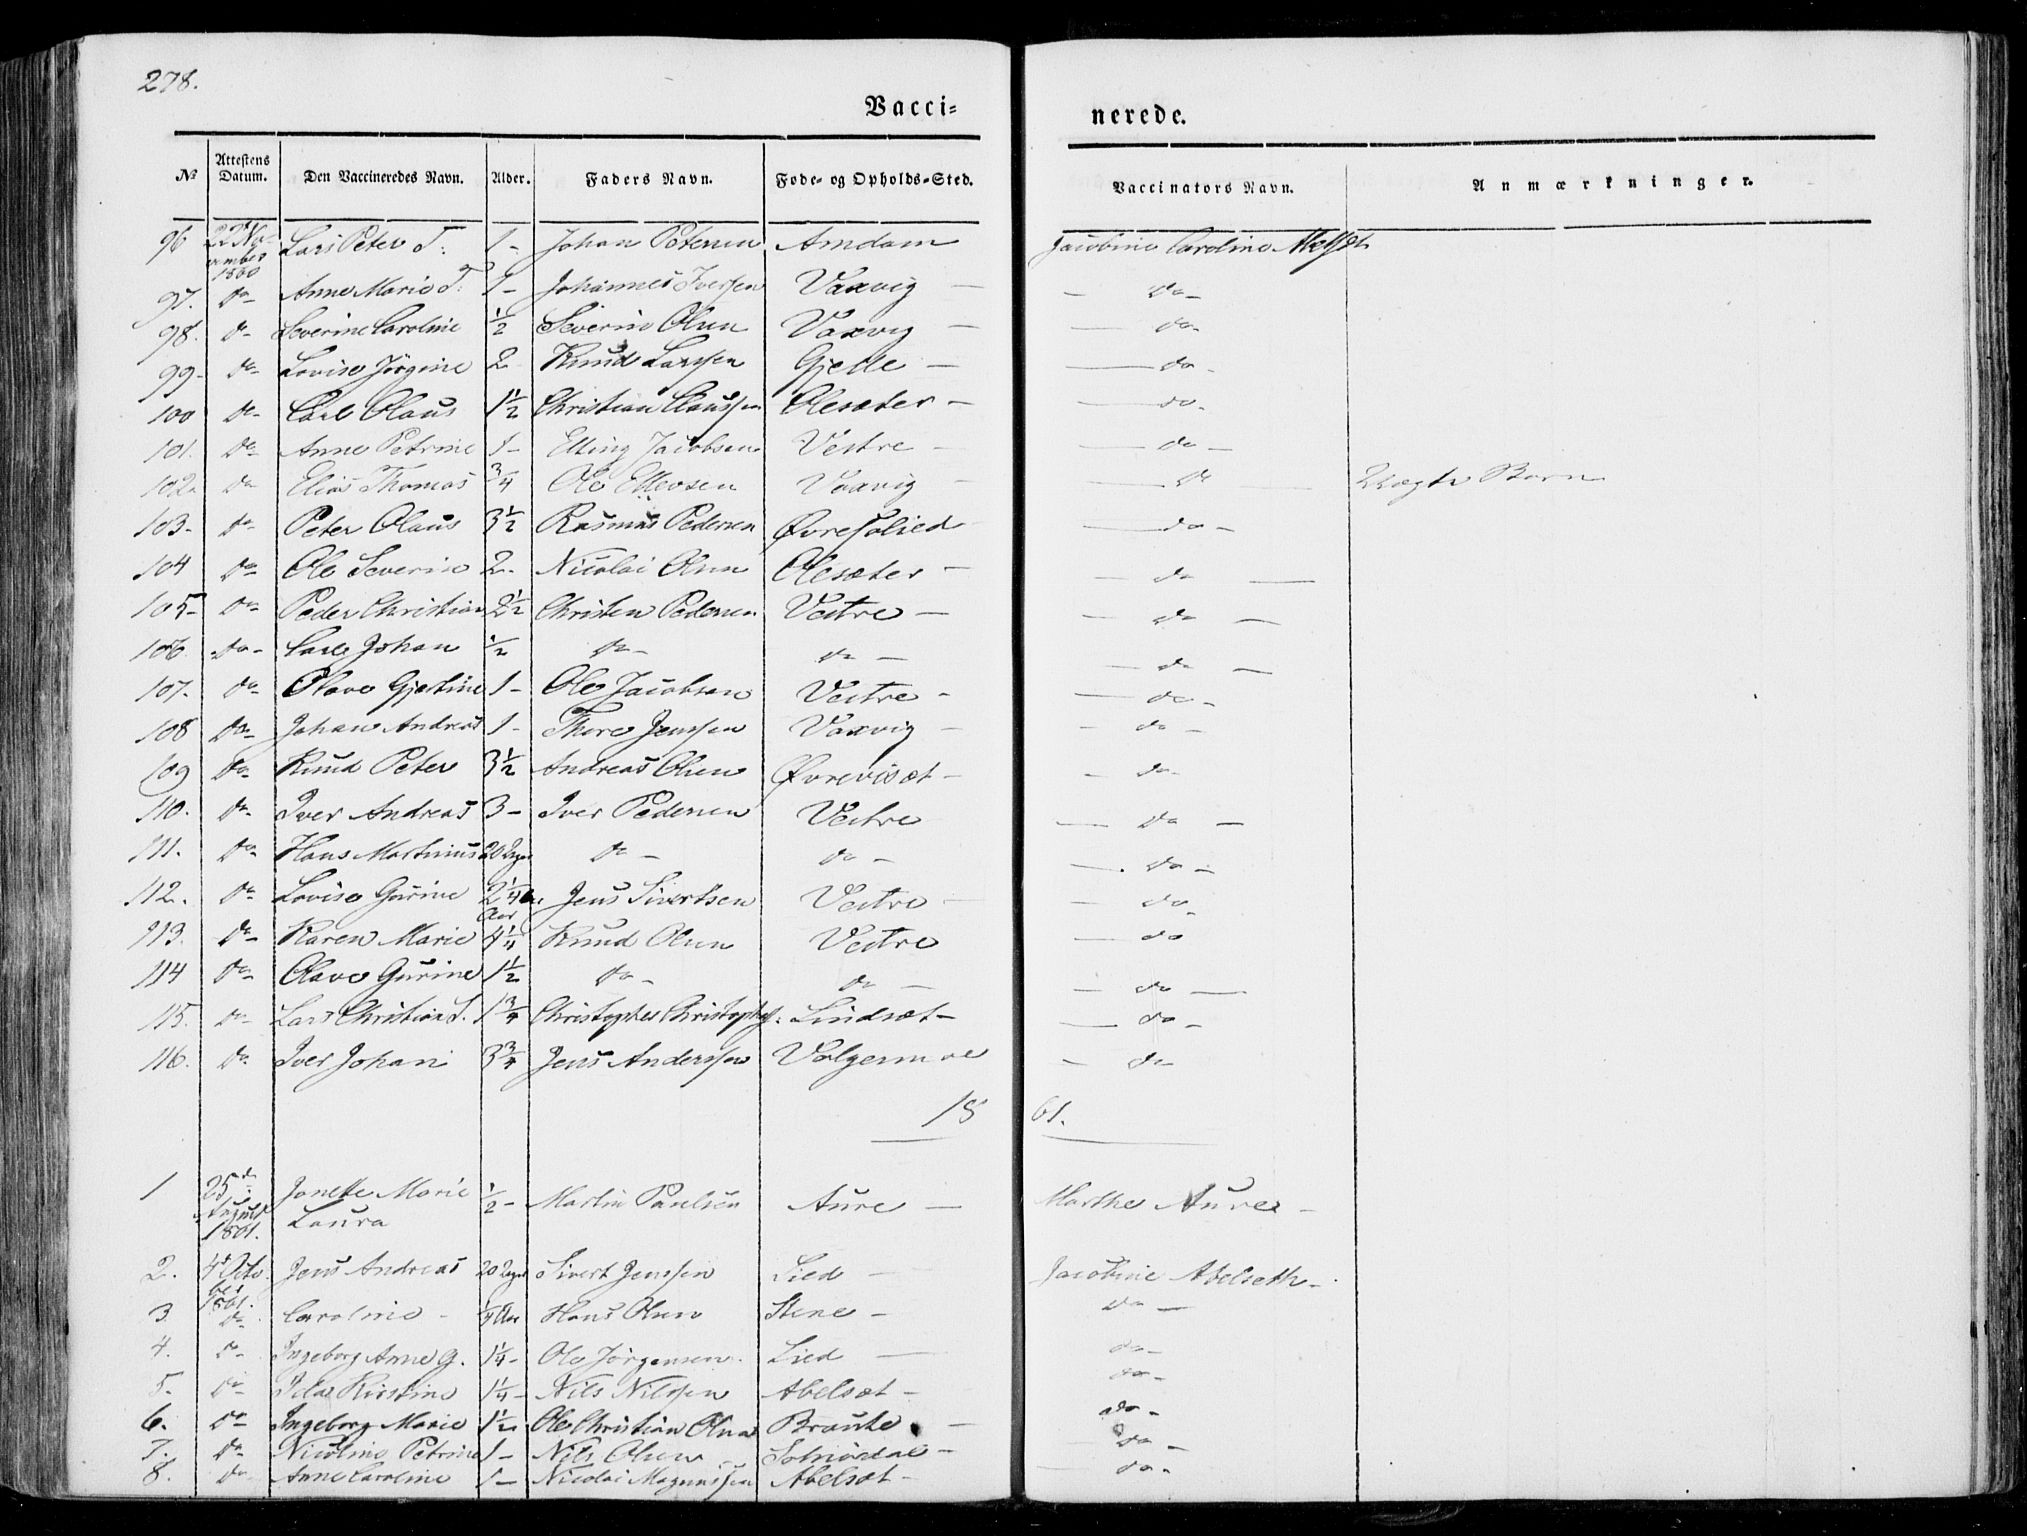 278.
Vacci= nerede.
№ Attestens Datum. Den Vaccineredes Navn. Alder. Faders Navn. Føde- og Opholds-Sted. Vaccinators Navn. Anmærkninger.
96 22de November 1860 Lars Peter T: 1- Johan Petersen Amdam Jacobine Caroline
97. do- Anne Marie T: 1- Johannes Iversen Vaxvig - - do-
98. do- Severine Caroline 1/2 Severin Olsen Vaxvig - - do-
99- do- Lovise Jörgine 2 Knud Larssen Gjelle - - do-
100 do- Carl Olaus 1 1/2 Christian Claussen Olesæter - - do-
101. do- Anne Petrine 1- Elling Jacobsen Vestre - - do -
102. do- Elias Thomas 3/4 Ole Ellevsen Vaxvig - - do - Uægte Barn
103- do- Peter Olaus 3 1/2 Rasmus Pedersen Øvrefolied - - do -
104 do- Ole Severin 2- Nicolai Olsen Olesæter - - do -
105- do- Peder Christian 2 1/2 Christen Pedersen Vestre - - do -
106 do- Carl Johan 1/2 do- do - - do -
107- do- Olave Gjertine 1- Ole Jacobsen Vestre - - do -
108 do- Johan Andreas 1- Thore Jenssen Vaxvig - - do -
109 do- Knud Peter 3 1/2 Andreas Olsen Øvreviset - - do-
110. do- Iver Andreas 3- Iver Pedersen Vestre - do -
111. do- Hans Martinus 20 Uger do - do - - do -
112. do- Lovise Gurine 2 1/4 Aar Jens Sivertsen Vestre - - do -
113. do- Karen Marie 4 1/4 Knud Olsen Vestre - do
114 do- Olave Gurine 1 1/2 do- do - - do -
115. do- Lars Christian S. 1 3/4 Christopher Christophss: Lindset- - do -
116. do- Iver Johan 3 3/4 Jens Anderssen Valgermoe - do
18 61.
1 25de August 1861. Jonette Marie Laura 1/2- Martin Paulsen Aure - Marthe Aure -
2. 4de October 1861. Jens Andreas 20 Uger Sivert Jenssen Lied - Jacobine Abelseth -
3. do- Caroline - 1/4 Aar Hans Olsen Stene - do -
4. do- Ingeborg Anne G. 1 1/4- Ole Jörgensen Lied - do-
5. do- Ida Kirstine 1 1/4- Nils Nilssen Abelset - do-
6. do- Ingeborg Marie 1 1/2 Ole Christian Olsen Braute - do -
7. do- Nicoline Petrine 1- Nils Olsen Solnördal - do -
8. do- Anne Caroline 1- Nicolai Magnussen Abelset - do-